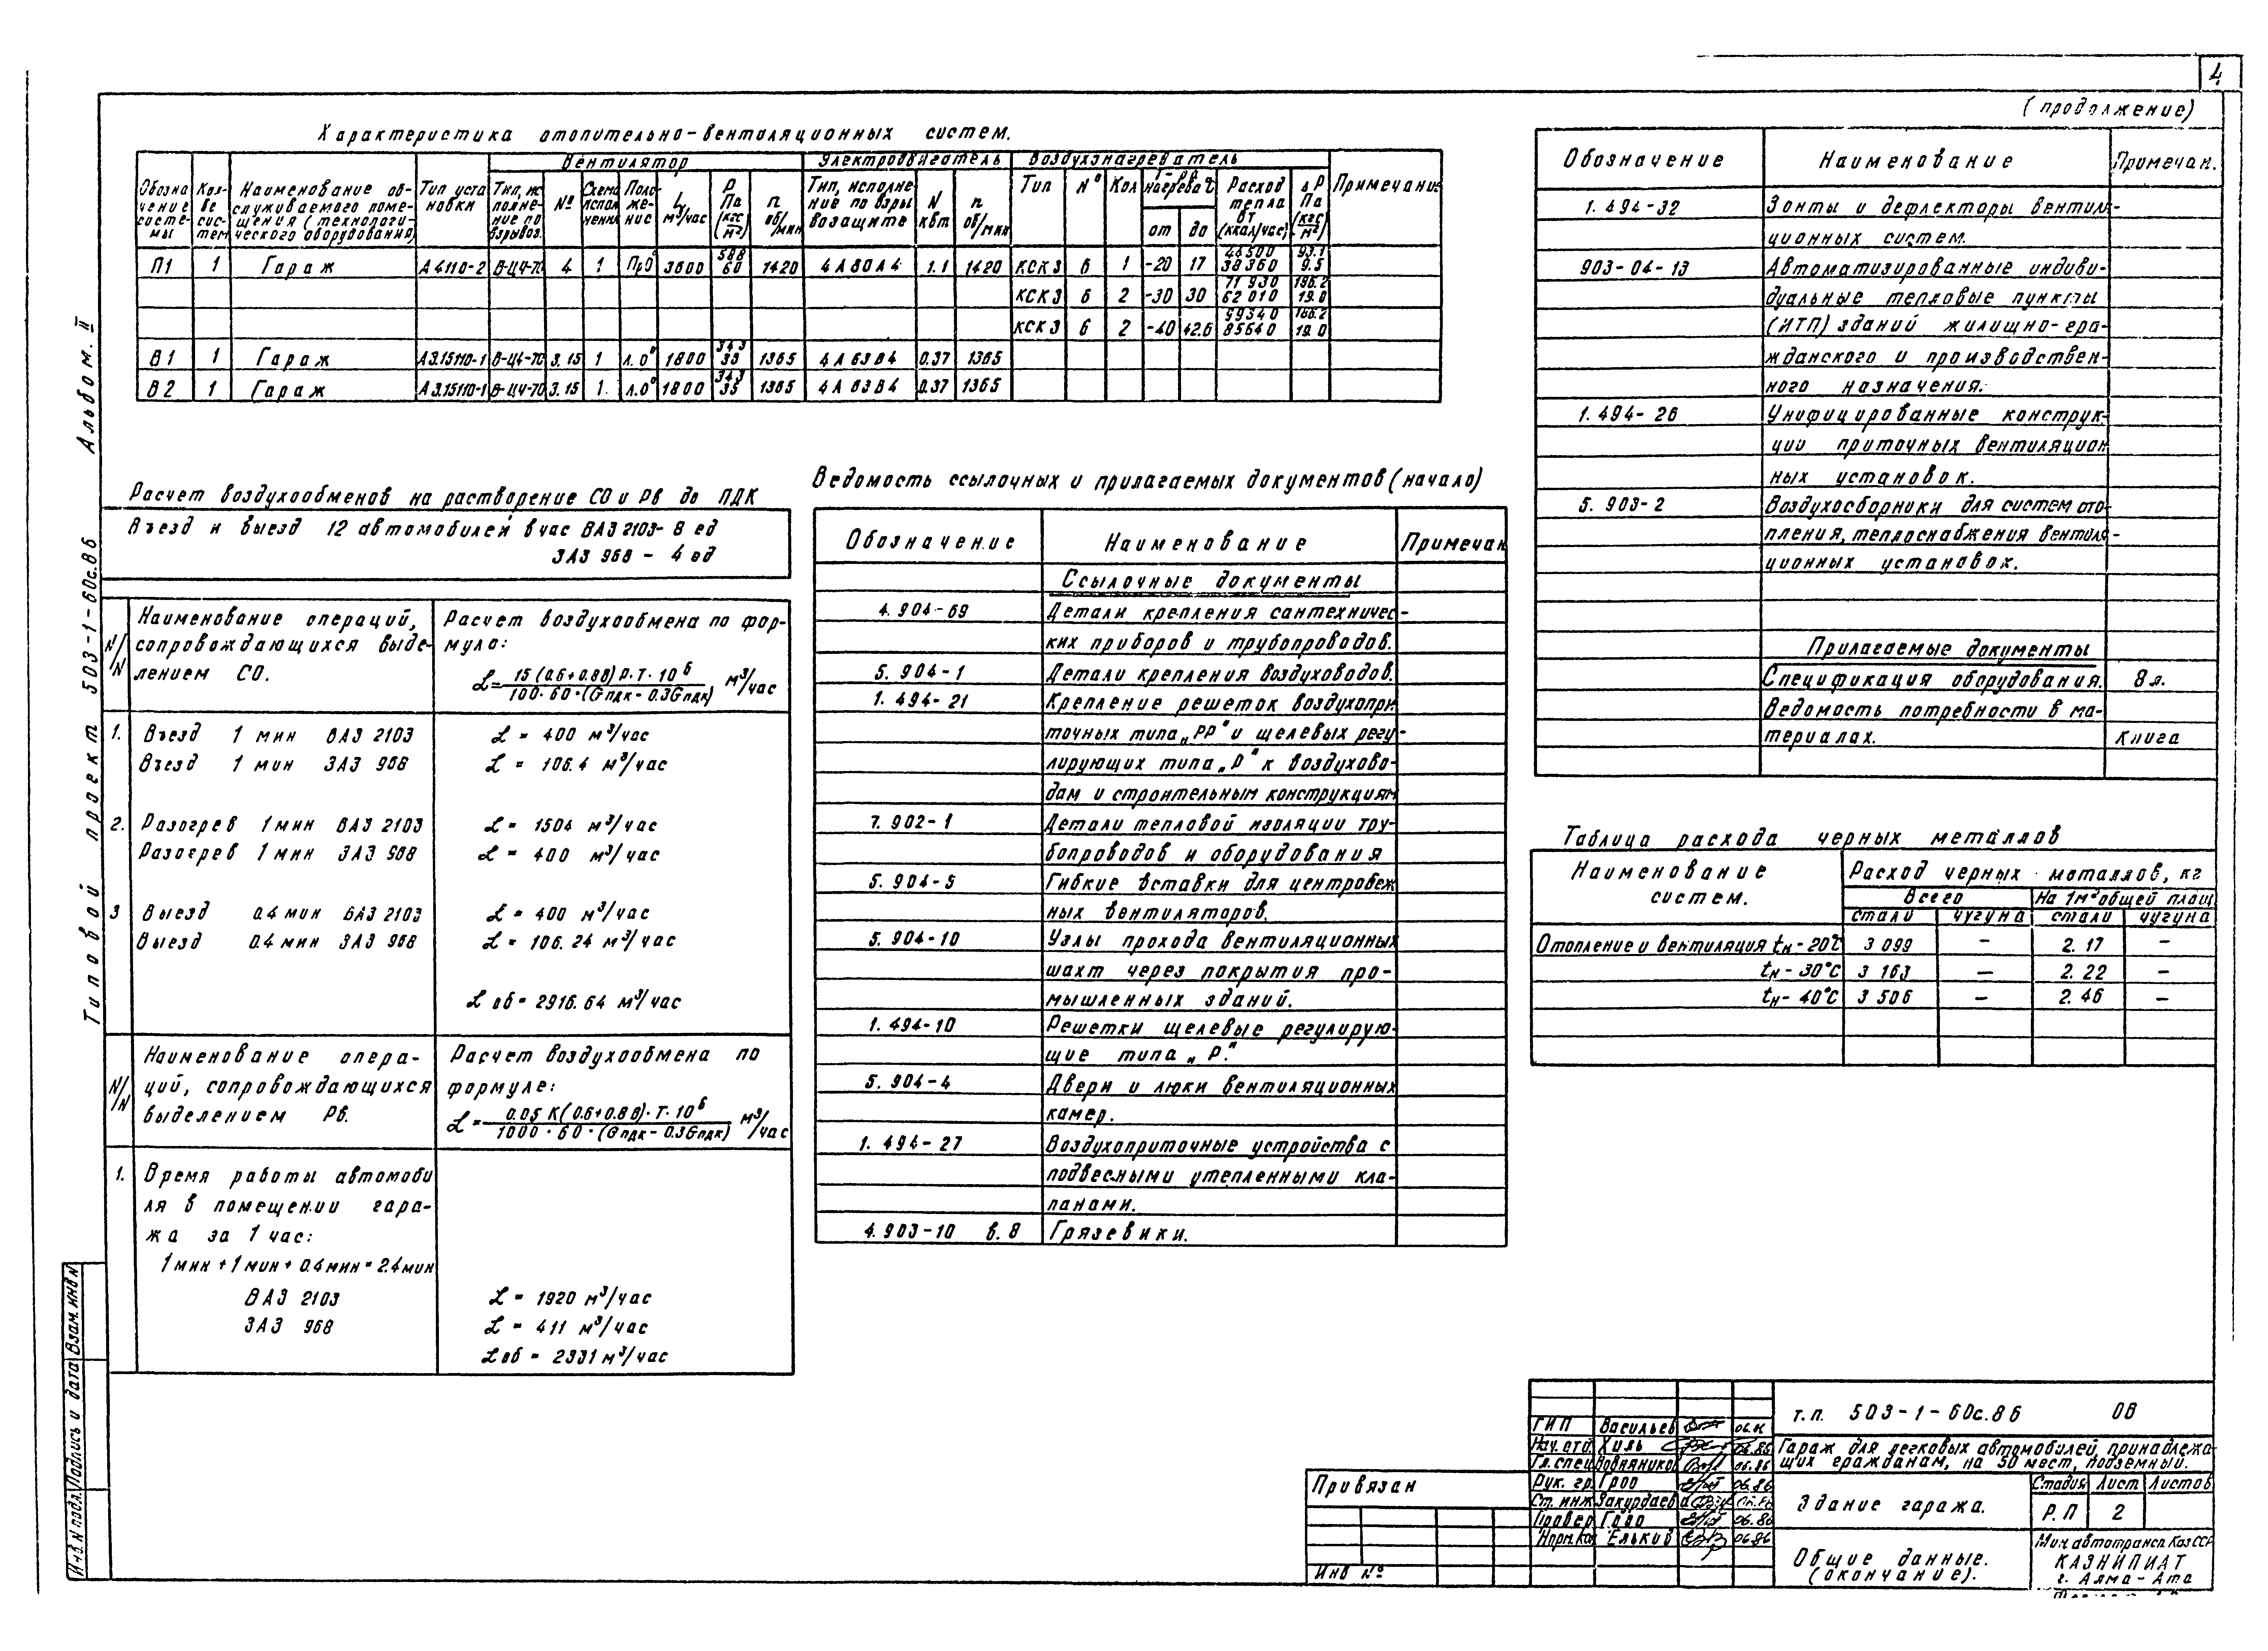 4
(продолжение)
Характеристика отопительно-вентиляционных систем.
Обозначение системы | Кол-во систем | Наименование обслуживаемого помещения (технологического оборудования) | Тип установки | Вентилятор | Электродвигатель | Воздухонагреватель | Примечание
Тип, исполнение по взрывоз. | № | Схема исполнения | Положение | L м³/час | Р Па (кгс/м²) | n об/мин | Тип, исполнение по взрывозащите | N квт | n об/мин | Тип | № | Кол | Т-ра нагрева °С от до | Расход тепла вт (ккал/час) | ΔР Па (кгс/м²)
П1 1 Гараж А4110-2 В-Ц4-70 4 1 Пр0° 3600 588 60 1420 4А80А4 1.1 1420 КСК3 6 1 -20 17 44500 38360 93.1 9.5
КСК3 6 2 -30 30 71930 62010 186.2 19.0
КСК3 6 2 -40 42.6 99340 85640 186.2 19.0
В1 1 Гараж А3.15110-1 В-Ц4-70 3.15 1 Л.0° 1800 343 35 1365 4А63В4 0.37 1365
В2 1 Гараж А3.15110-1 В-Ц4-70 3.15 1. Л.0° 1800 343 35 1365 4А63В4 0.37 1365
Расчет воздухообменов на растворение СО и Рв до ПДК
Въезд и выезд 12 автомобилей в час ВАЗ 2103- 8 ед
ЗАЗ 968 - 4 ед
N/N
Наименование операций,
сопровождающихся выде-
лением СО.
Расчет воздухообмена по фор-
муле:
L= 15(0.6+0.8В)Р·Т·10⁶ / 100·60·(Gпдк-0.3Gпдк) м³/час
1. Въезд 1 мин ВАЗ 2103 L = 400 м³/час
Въезд 1 мин ЗАЗ 968 L = 106.4 м³/час
2. Разогрев 1 мин ВАЗ 2103 L = 1504 м³/час
Разогрев 1 мин ЗАЗ 968 L = 400 м³/час
3 Выезд 0.4 мин ВАЗ 2103 L = 400 м³/час
Выезд 0.4 мин ЗАЗ 968 L = 106.24 м³/час
L об = 2916.64 м³/час
N/N
Наименование опера-
ций, сопровождающихся
выделением Рв.
Расчет воздухообмена по
формуле:
L= 0.05 К(0.6+0.8В)·Т·10⁶ / 1000·60·(Gпдк-0.3Gпдк) м³/час
1. Время работы автомоби
ля в помещении гара-
жа за 1 час:
1 мин + 1 мин + 0.4 мин = 2.4 мин
ВАЗ 2103 L = 1920 м³/час
ЗАЗ 968 L = 411 м³/час
L об = 2331 м³/час
Ведомость ссылочных и прилагаемых документов (начало)
Обозначение Наименование Примечан
Ссылочные документы
4.904-69 Детали крепления сантехничес-
ких приборов и трубопроводов.
5.904-1 Детали крепления воздуховодов.
1.494-21 Крепление решеток воздухопри
точных типа „РР" и щелевых регу-
лирующих типа „Р" к воздухово-
дам и строительным конструкциям
7.902-1 Детали тепловой изоляции тру-
бопроводов и оборудования
5.904-5 Гибкие вставки для центробеж
ных вентиляторов.
5.904-10 Узлы прохода вентиляционных
шахт через покрытия про-
мышленных зданий.
1.494-10 Решетки щелевые регулирую-
щие типа „Р."
5.904-4 Двери и люки вентиляционных
камер.
1.494-27 Воздухоприточные устройства с
подвесными утепленными кла-
панами.
4.903-10 в.8 Грязевики.
Обозначение Наименование Примечан.
1.494-32 Зонты и дефлекторы вентиля-
ционных систем.
903-04-13 Автоматизированные индиви-
дуальные тепловые пункты
(ИТП) зданий жилищно-гра-
жданского и производствен-
ного назначения.
1.494-26 Унифицированные конструк-
ции приточных вентиляцион
ных установок.
5.903-2 Воздухосборники для систем ото-
пления, теплоснабжения вентиля-
ционных установок.
Прилагаемые документы
Спецификация оборудования. 8 л.
Ведомость потребности в ма-
териалах. Книга
Таблица расхода черных металлов
Наименование систем. Расход черных металлов, кг
Всего На 1м² общей площ
стали чугуна стали чугуна
Отопление и вентиляция tн - 20°С 3 099 — 2.17 —
tн - 30°С 3 163 — 2.22 —
tн - 40°С 3 506 — 2.46 —
Типовой проект 503-1-60с.86 Альбом. II
Инв.N подл. Подпись и дата Взам.инв N
Привязан
Инв №
ГИП Васильев
Нач. отд. Хиль 06.86
Гл. спец 06.86
Рук. гр. Гроо 06.86
Ст. инж. Закурдаева 06.86
Провер Гроо 06.86
Норм.ко Ельков 06.86
т.п. 503-1-60с.86 ОВ
Гараж для легковых автомобилей, принадлежа-
щих гражданам, на 50 мест, подземный.
Здание гаража.
Стадия Лист Листов
Р.П 2
Общие данные.
(окончание).
Мин.автотрансп.КазССР
КАЗНИПИАТ
г. Алма-Ата